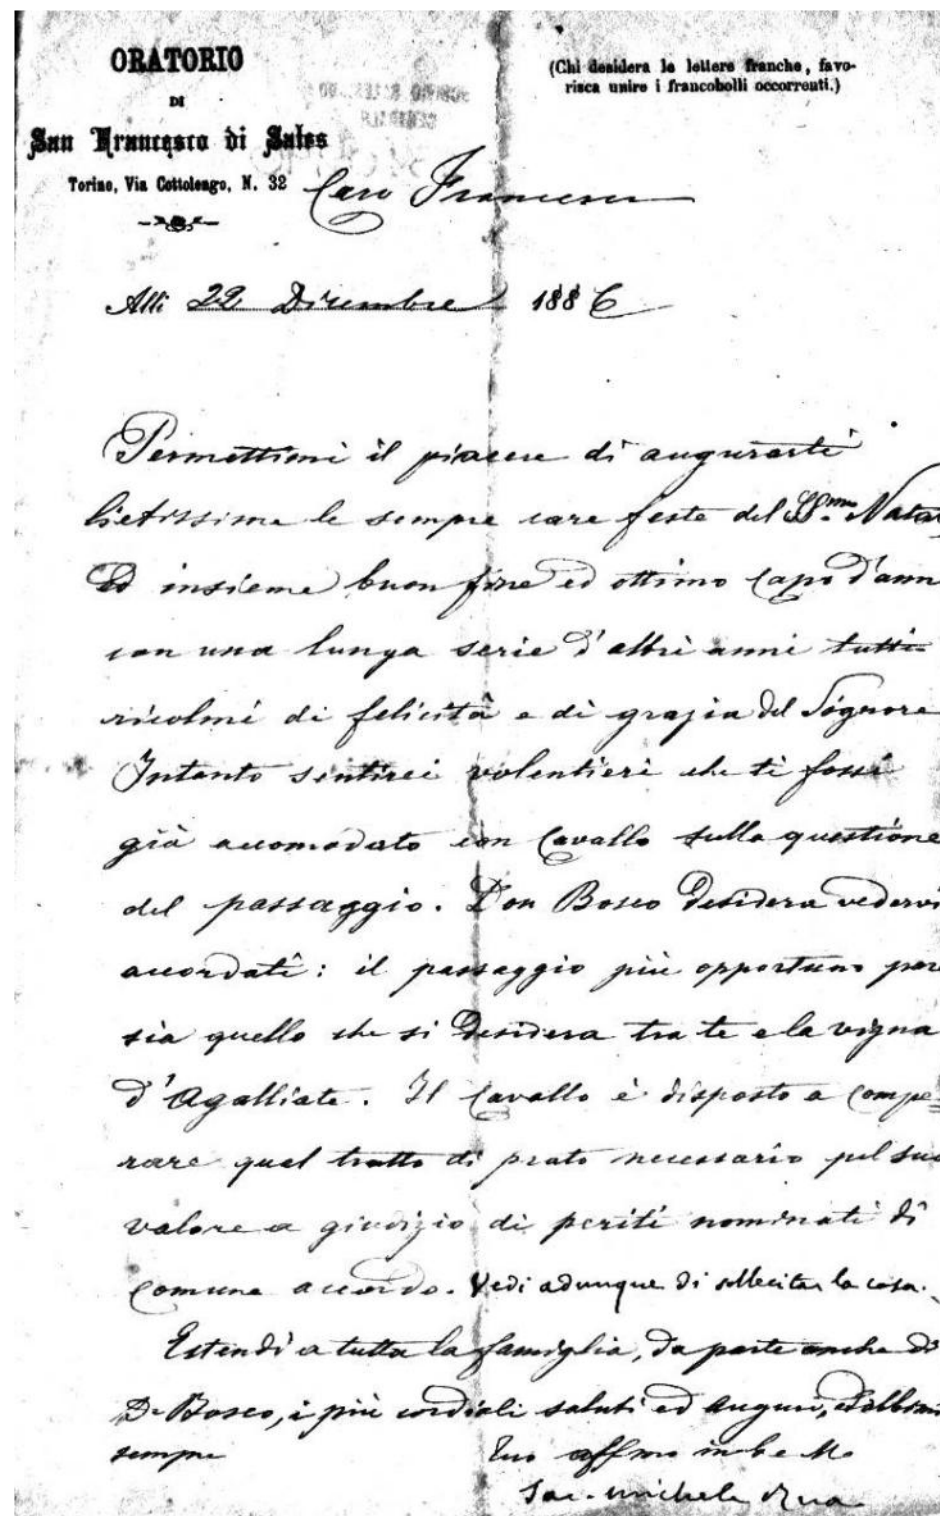 ORATORIO
DI
San Francesco di Sales
Torino, Via Cottolengo, N. 32
(Chi desidera le lettere franche, favo-
risca unire i francobolli occorrenti.)
Caro Francesco
Alli 22 Dicembre 1886
Permettimi il piacere di augurarti
lietissime le sempre care feste del SS.mo Natal
ed insieme buon fine ed ottimo Capo d'ann
con una lunga serie d'altri anni tutti
ricolmi di felicità e di grazia del Signore
Intanto sentirei volentieri che ti fossi
già accomodato con Cavallo sulla questione
del passaggio. Don Bosco desidera vedervi
accordati: il passaggio più opportuno pare
sia quello che si desidera tra te e la vigna
d'Agalliate. Il Cavallo è disposto a compe-
rare quel tratto di prato necessario pel suo
valore a giudizio di periti nominati di
comune accordo. Vedi adunque di sollecitar la cosa.
Estendi a tutta la famiglia, da parte anche di
D. Bosco, i più cordiali saluti ed auguri,
sempre
Tuo affmo in G. e M.
Sac. Michele Rua